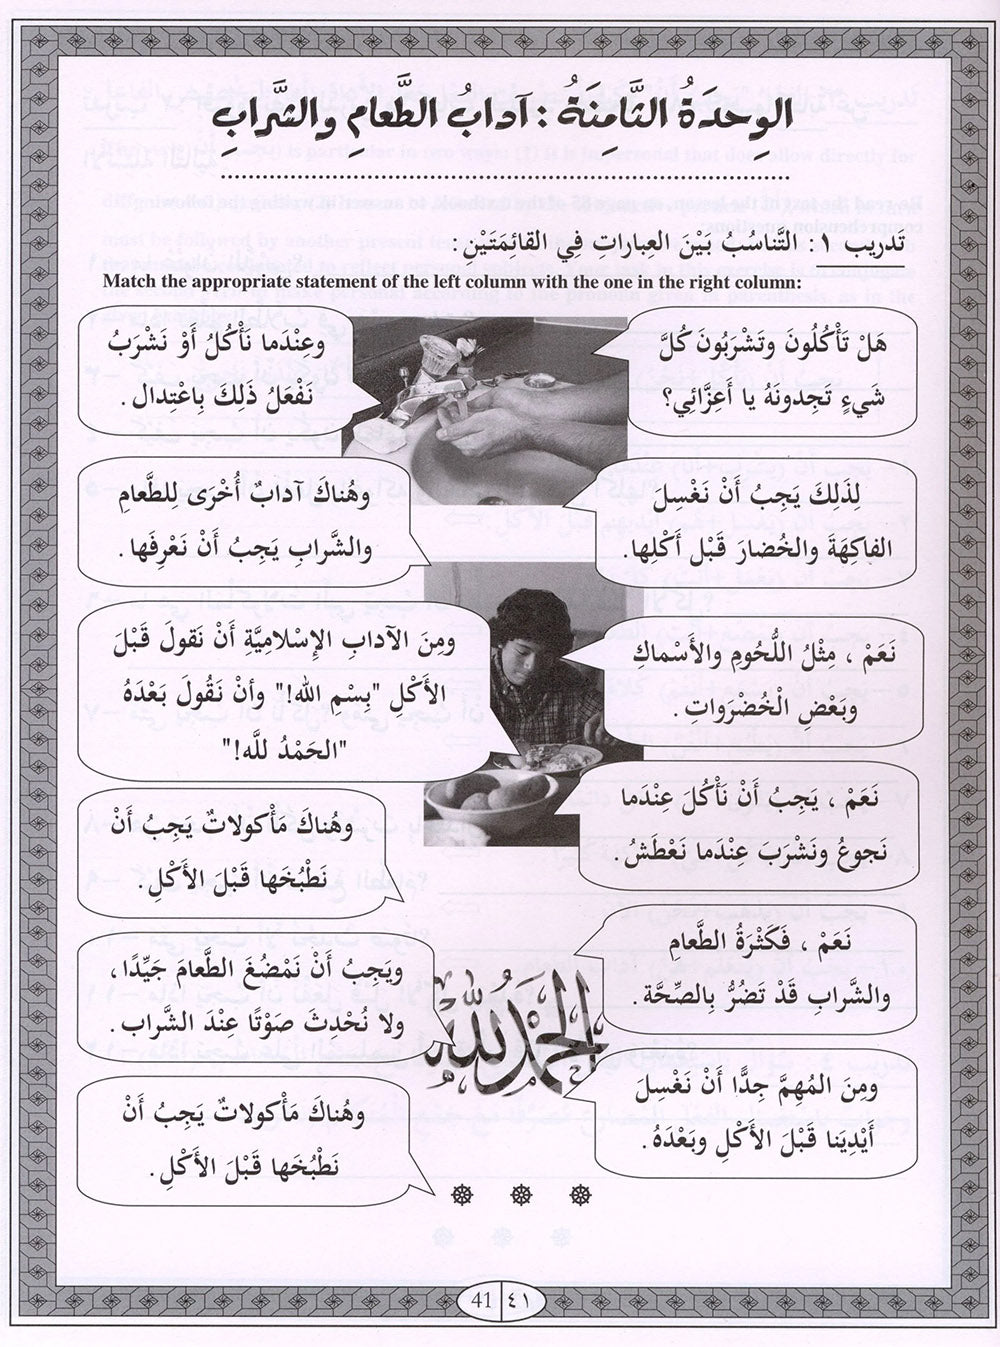 الوِحدَةُ الثَّامِنَةُ : آدابُ الطَّعامِ والشَّرابِ
تدريب ١ : التَّناسُب بَيْنَ العِبارات في القائِمَتَيْنِ :
Match the appropriate statement of the left column with the one in the right column:
هَلْ تَأْكُلُونَ وتَشْرَبُونَ كُلَّ
شَيءٍ تَجِدونَهُ يا أَعِزَّائِي؟
وعِنْدَما نَأْكُلُ أَوْ نَشْرَبُ
نَفْعَلُ ذَلِكَ بِاعْتِدال.
لِذَلِكَ يَجِبُ أَنْ نَغْسِلَ
الفاكِهَةَ والخُضارَ قَبْلَ أَكْلِها.
وهُناكَ آدابٌ أُخْرَى لِلطَّعامِ
والشَّرابِ يَجِبُ أَنْ نَعْرِفَها.
نَعَمْ ، مِثْلُ اللُّحُومِ والأَسْماكِ
وبَعْضِ الْخُضْرَواتِ.
ومِنَ الآدابِ الإِسْلامِيَّةِ أَنْ نَقولَ قَبْلَ
الأَكْلِ "بِسْمِ الله!" وأنْ نَقُولَ بَعْدَهُ
"الحَمْدُ للَّه!"
نَعَمْ ، يَجِبُ أَنْ نَأْكُلَ عِنْدَما
نَجوعُ ونَشْرَبَ عِنْدَما نَعْطَشُ.
وهُناكَ مَأْكولاتٌ يَجِبُ أَنْ
نَطْبُخَها قَبْلَ الأَكْلِ.
نَعَمْ ، فَكَثْرَةُ الطَّعامِ
والشَّرابِ قَدْ تَضُرُّ بِالصِّحَّة.
ويَجِبُ أَنْ نَمْضُغَ الطَّعامَ جَيِّدًا،
ولا نُحْدِثَ صَوْتًا عِنْدَ الشَّراب.
الحمد لله
ومِنَ المُهِمَّ جِدًّا أَنْ نَغْسِلَ
أَيْدِيَنا قَبْلَ الأَكْلِ وبَعْدَهُ.
وهُناكَ مَأْكولاتٌ يَجِبُ أَنْ
نَطْبُخَها قَبْلَ الأَكْلِ.
41 ٤١